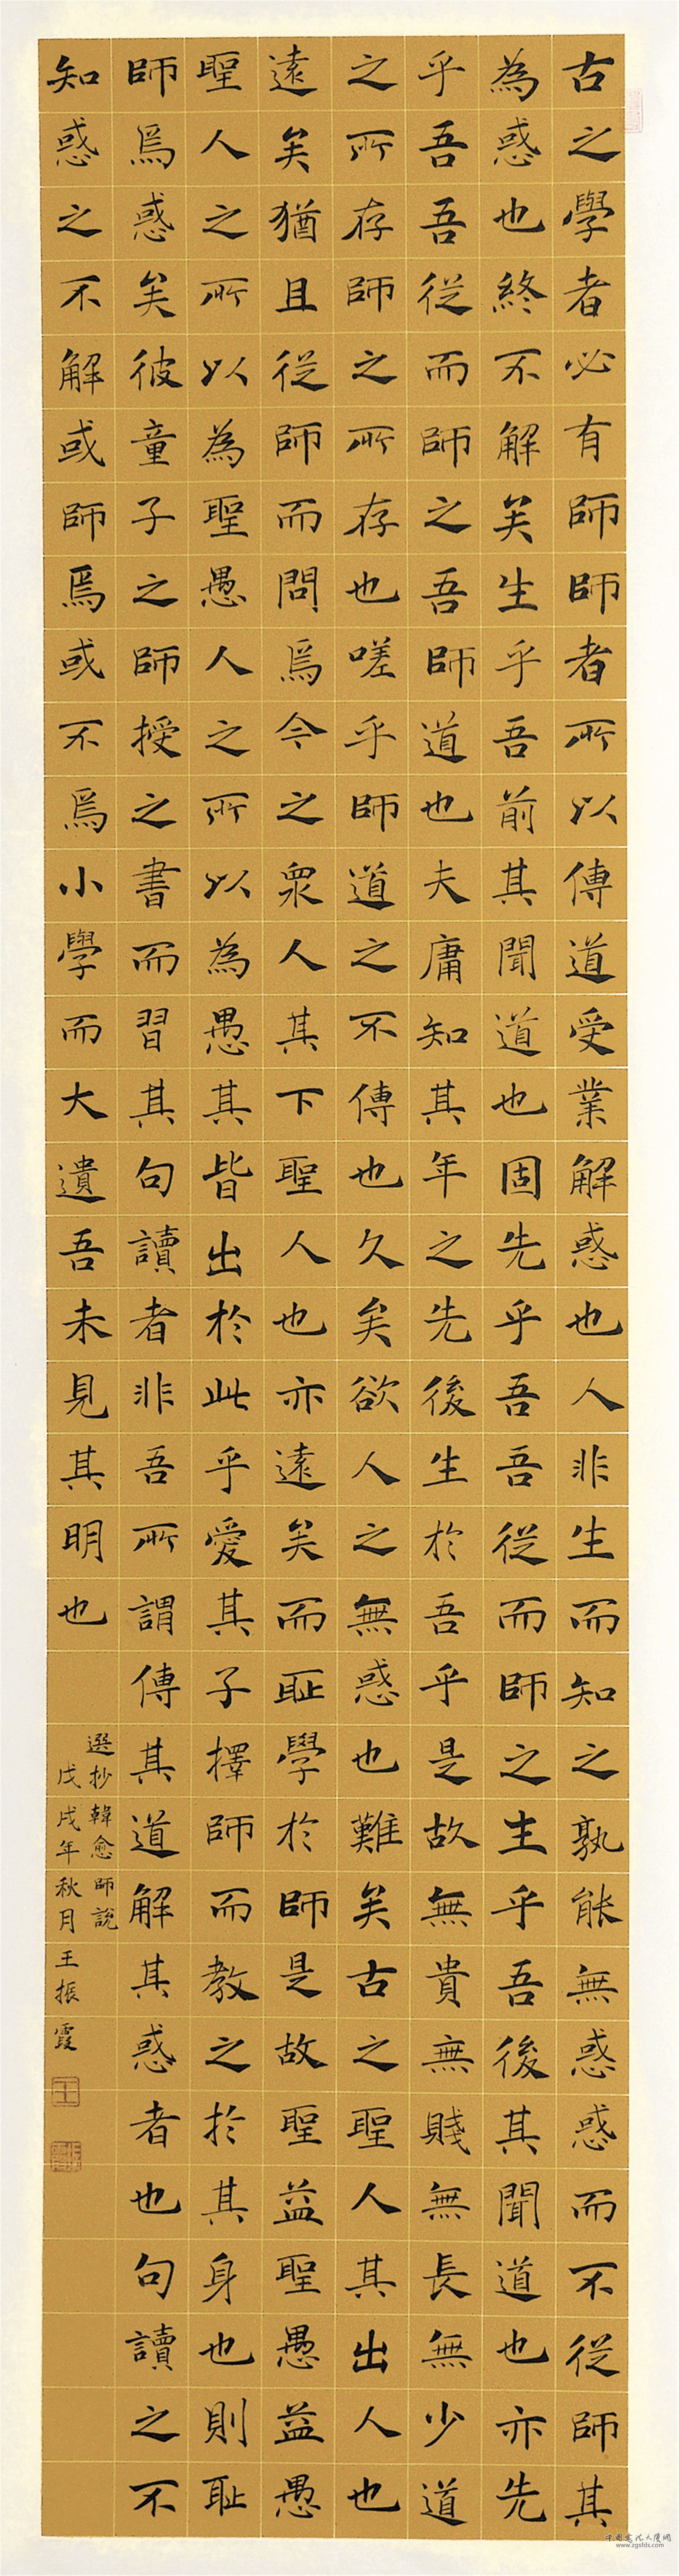 古之學者必有師師者所以傳道受業解惑也人非生而知之孰能無惑惑而不從師其
為惑也終不解矣生乎吾前其聞道也固先乎吾吾從而師之生乎吾後其聞道也亦先
乎吾吾從而師之吾師道也夫庸知其年之先後生於吾乎是故無貴無賤無長無少道
之所存師之所存也嗟乎師道之不傳也久矣欲人之無惑也難矣古之聖人其出人也
遠矣猶且從師而問焉今之衆人其下聖人也亦遠矣而耻學於師是故聖益聖愚益愚
聖人之所以為聖愚人之所以為愚其皆出於此乎愛其子擇師而教之於其身也則耻
師焉惑矣彼童子之師授之書而習其句讀者非吾所謂傳其道解其惑者也句讀之不
知惑之不解或師焉或不焉小學而大遺吾未見其明也
選抄韓愈師說
戊戌年秋月王振霞
王
www.zgsfds.com